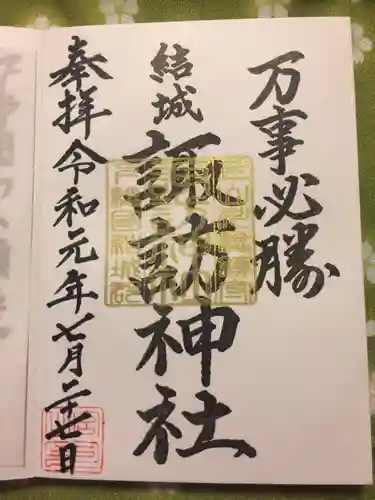 万事必勝
結城
諏訪神社
奉拝 令和元年七月二十七日